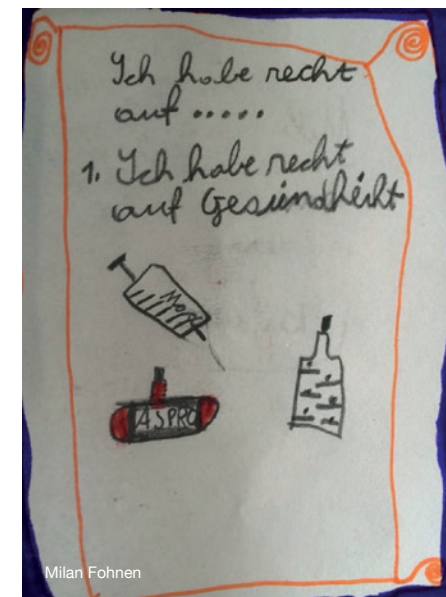 Ich habe recht
auf .....
1. Ich habe recht
auf Gesündheiht
ASPRO
Milan Fohnen